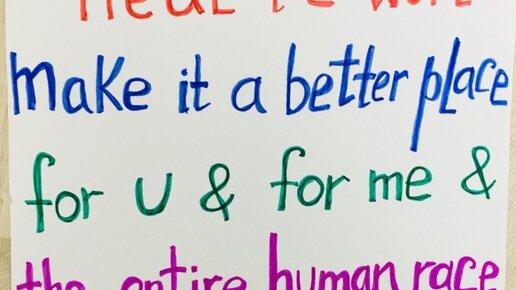 Heal
make it a better place
for u & for me &
the entire human race